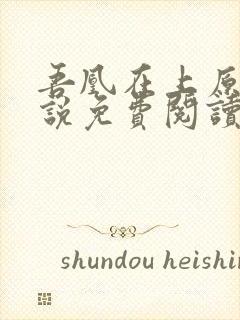 吾凰在上原
說免費閱讀
shundou heishin